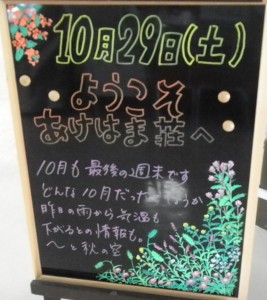 10月29日(土)
ようこそ
あけはま荘へ
10月も最後の週末です
どんな10月だったでしょうか
昨日の雨から気温も
下がるとの情報も。
〜と秋の空